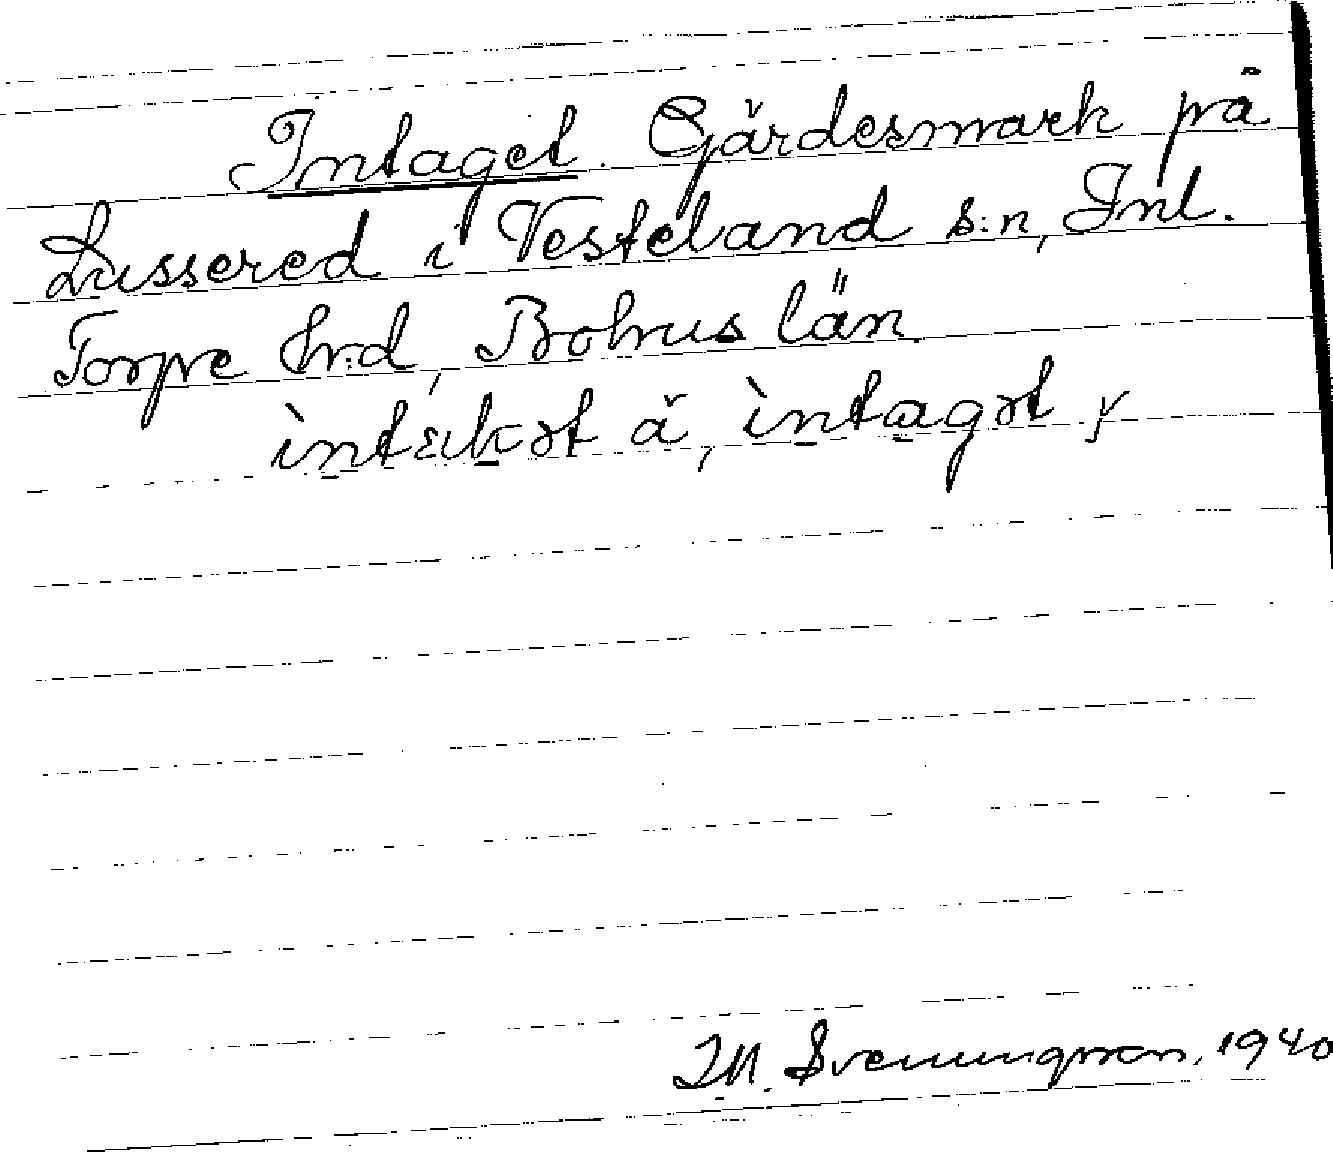 Intaget. Gärdesmark på
Lussered i Vesteland s:n, Inl.
Torpe hrd, Bohus län.
ìntākət ä, ìntagət y
M. Svenungsson, 1940